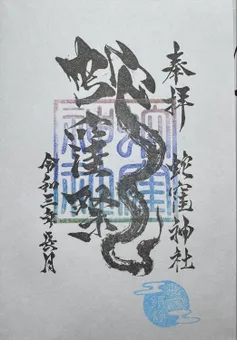 奉拝
蛇窪神社
蛇窪祭
令和三年長月